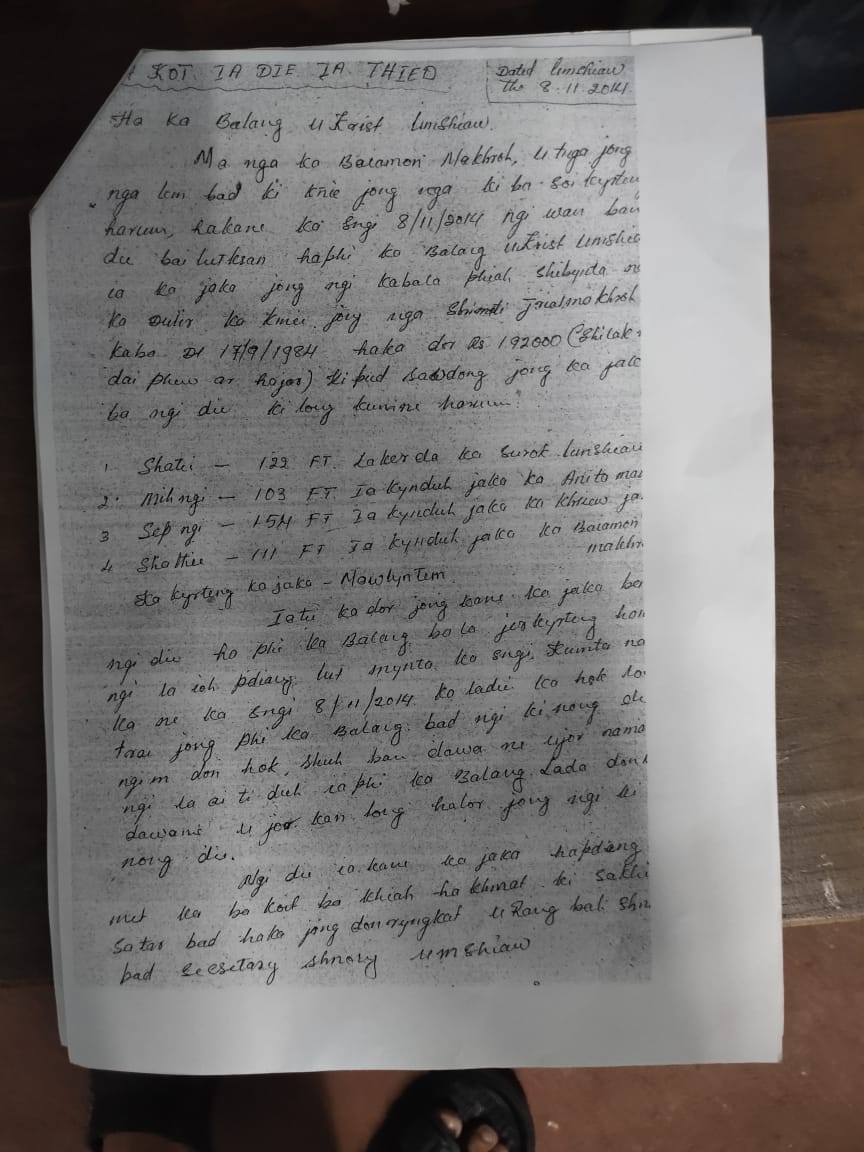 KOT IA DIE IA THIED
Dated Umshiaw
the 8.11.2014
Ha Ka Balang U Krist Umshiaw.
Ma nga ka Baiamon Makhroh, u trga jong
nga lem bad ki khie jong nga ki ba soi kyrteng
harum, hakane ka sngi 8/11/2014 ngi wan ban
die bai lutksan haphi ka Balang U Krist Umshia
ia ka jaka jong ngi kabala phiah shibynta na
ka Kmie jong nga Shimti
kaba Dt 17/9/1984 haka dor Rs 192000 (Shilak
dai phew ar hajar) ki pud sawdong jong ka jaka
ba ngi die ki long kumne harum:
1 Shatei – 122 FT. Laker da ka Surok Umshiaw
2. Mihngi – 103 FT. Ia kynduh jaka ka Anito ma
3 Sep ngi – 154 FT Ia kynduh jaka ka Khraw ja
4 Shathie – 111 FT Ia kynduh jaka ka Baiamon
makhr
Ka kyrteng ka jaka – Mawlyntem
Iatu ka dor jong kane ka jaka ba
ngi die ha phi ka Balang ba la jer kyrteng han
ngi la ioh pdiang lut mynta ka sngi, Kumta na
ka ne ka sngi 8/11/2014 ka ladie ka hok
trai jong phi ka Balang bad ngi ki nong die
ngim don hok shuh ban dawa ne ujor nama
ngi la ai ti duh ia phi ka Balang Lada don
dawane u jor kan long halor jong ngi ki
nong die.
Ngi die ia kane ka jaka hapdeng
met ka ba koit ba khiah ha khmat ki sakhi
satar bad haka jong don ryngkat u Rang bah shn
bad Secretary shnong Umshiaw